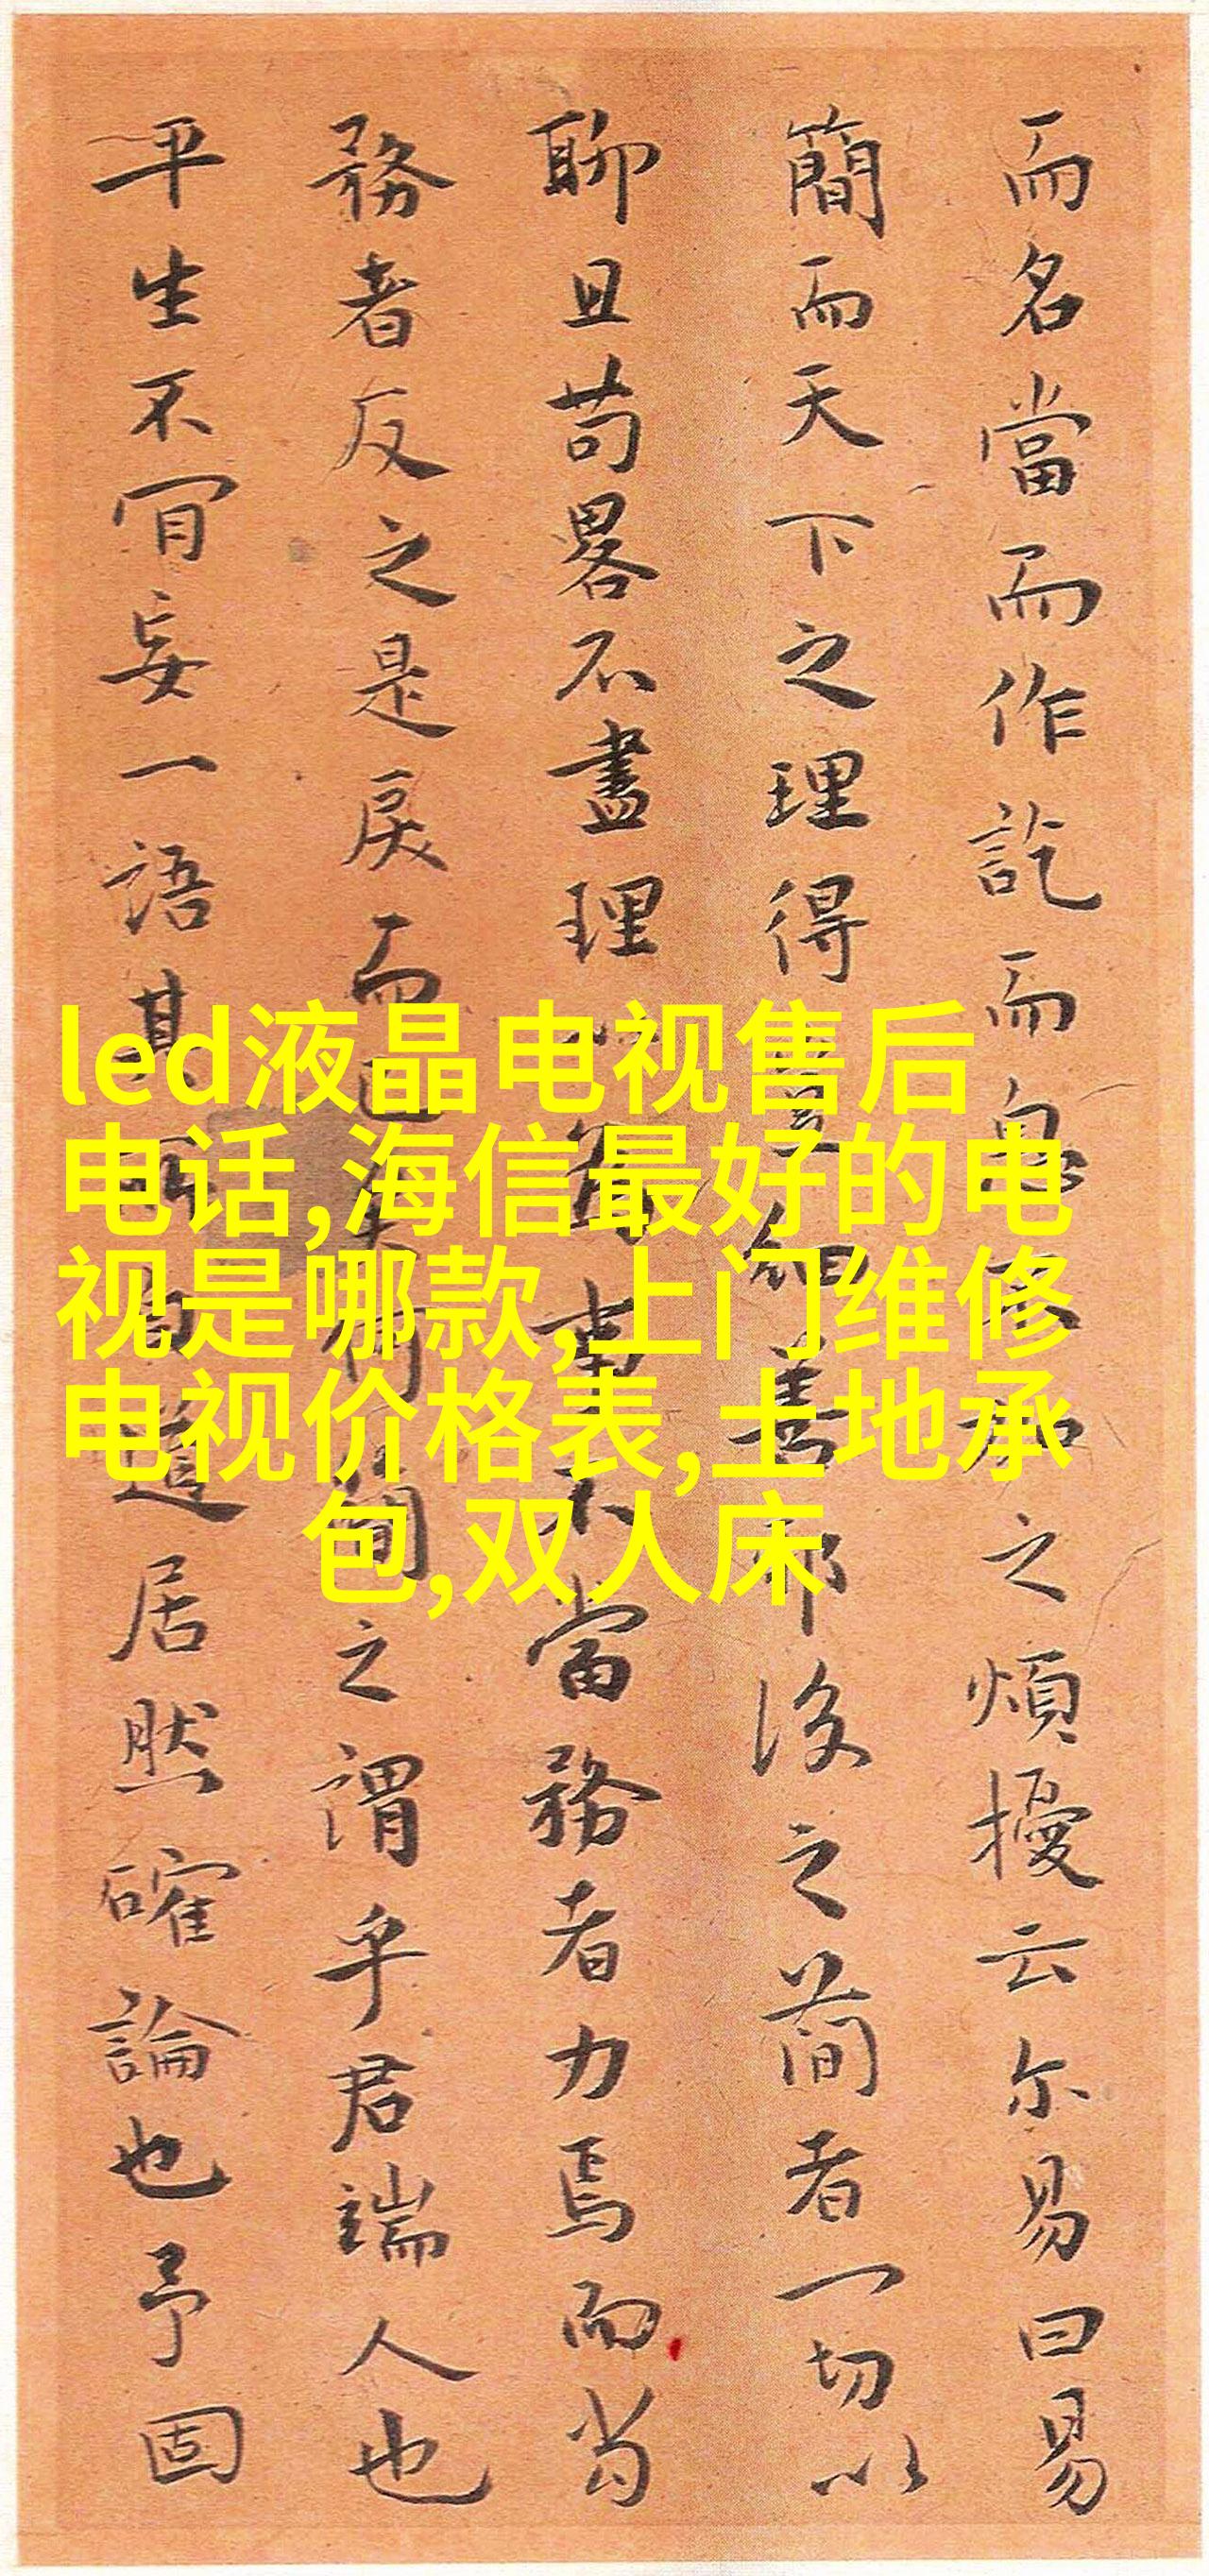 而名當而作訖而之煩擾云尔易曰易
簡而天下之理得細善耶後之簡者一切以
聊且苟畧不盡理事不當務者力焉而當
務者反之是戾而已矣何簡之謂乎君端人也
平生不肎妄一語其所自道居然確論也予固
led液晶电视售后
电话,海信最好的电
视是哪款,上门维修
电视价格表,土地承
包,双人床